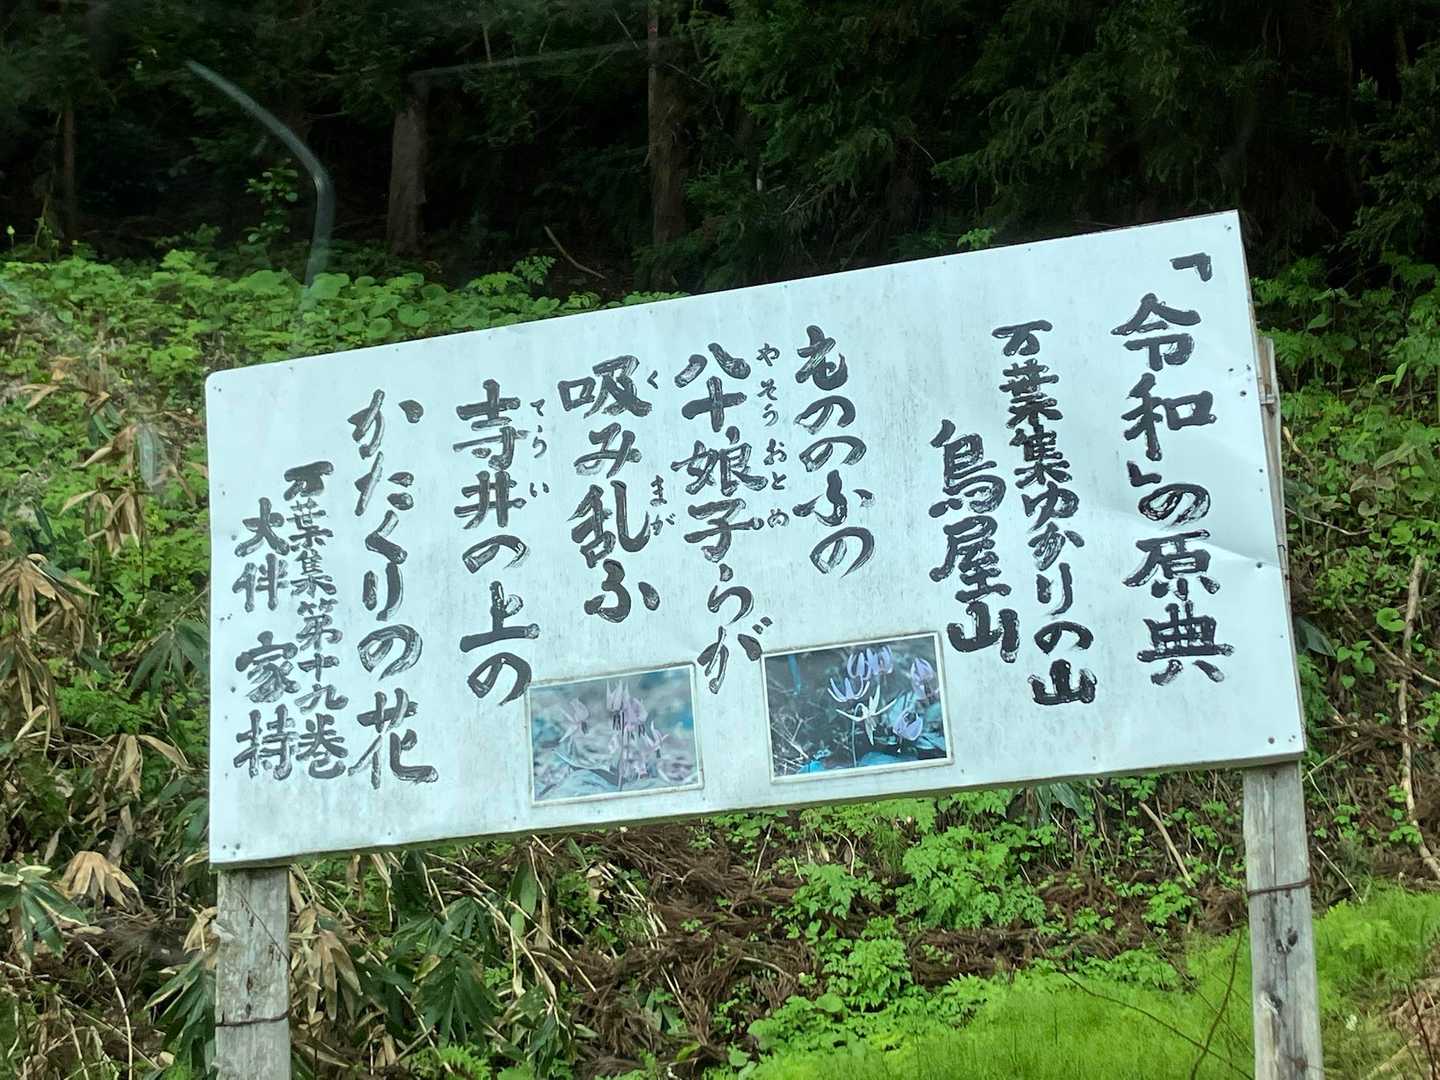 「令和」の原典
万葉集ゆかりの山
鳥屋山
もののふの
八十娘子らが
やそうおとめ
吸み乱ふ
く まが
寺井の上の
てらい
かたくりの花
万葉集第十九巻
大伴 家持